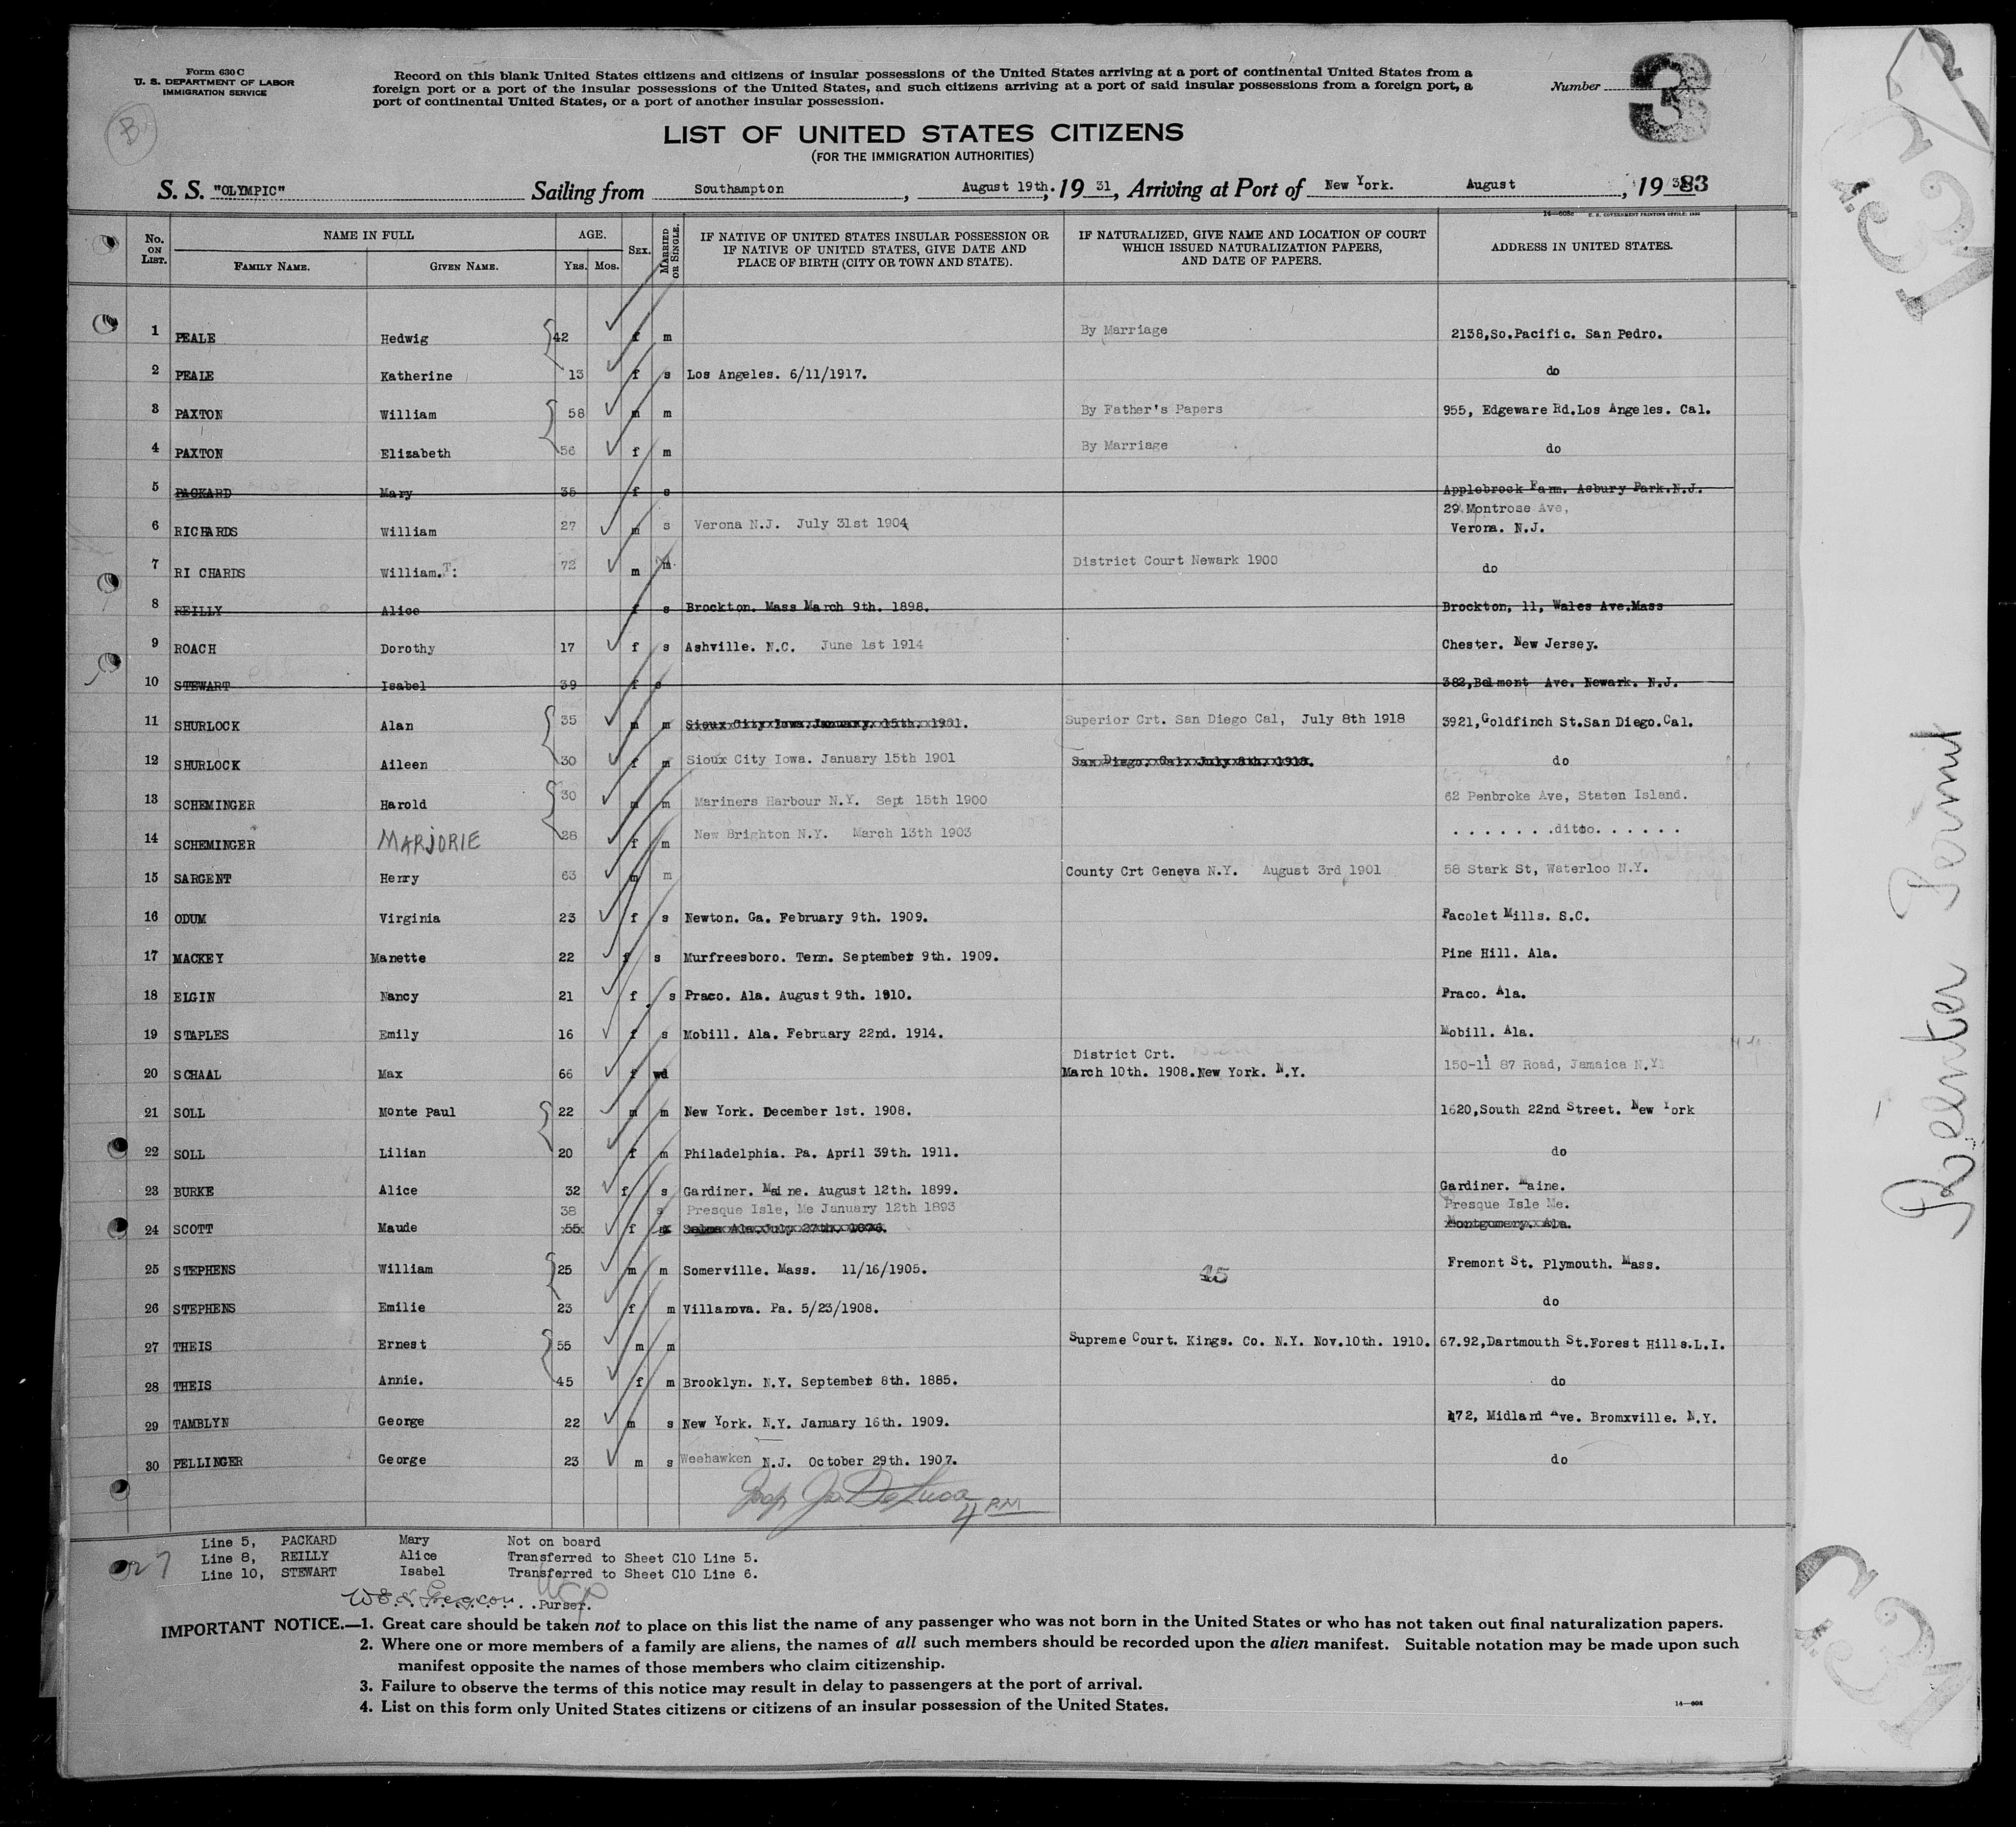 Form 630 C
U. S. DEPARTMENT OF LABOR
IMMIGRATION SERVICE
B
Record on this blank United States citizens and citizens of insular possessions of the United States arriving at a port of continental United States from a
foreign port or a port of the insular possessions of the United States, and such citizens arriving at a port of said insular possessions from a foreign port, a
port of continental United States, or a port of another insular possession.
Number 3
LIST OF UNITED STATES CITIZENS
(FOR THE IMMIGRATION AUTHORITIES)
S. S. "OLYMPIC" Sailing from Southampton, August 19th., 19 31, Arriving at Port of New York. August, 19
83
14—608c U. S. GOVERNMENT PRINTING OFFICE: 1930
No. ON LIST. NAME IN FULL FAMILY NAME. GIVEN NAME. AGE. YRS. MOS. SEX. MARRIED OR SINGLE. IF NATIVE OF UNITED STATES INSULAR POSSESSION OR IF NATIVE OF UNITED STATES, GIVE DATE AND PLACE OF BIRTH (CITY OR TOWN AND STATE). IF NATURALIZED, GIVE NAME AND LOCATION OF COURT WHICH ISSUED NATURALIZATION PAPERS, AND DATE OF PAPERS. ADDRESS IN UNITED STATES.
1 PEALE Hedwig 42 f m By Marriage 2138,So.Pacific. San Pedro.
2 PEALE Katherine 13 f s Los Angeles. 6/11/1917. do
3 PAXTON William 58 m m By Father's Papers 955, Edgeware Rd.Los Angeles. Cal.
4 PAXTON Elizabeth 56 f m By Marriage do
5 PACKARD Mary 35 f s Applebrook Farm. Asbury Park.N.J.
29 Montrose Ave,
6 RICHARDS William 27 m s Verona N.J. July 31st 1904 Verona. N.J.
7 RI CHARDS William.T: 72 m m District Court Newark 1900 do
8 REILLY Alice f s Brockton. Mass March 9th. 1898. Brockton, 11, Wales Ave.Mass
9 ROACH Dorothy 17 f s Ashville. N.C. June 1st 1914 Chester. New Jersey.
10 STEWART Isabel 39 f s 382,Belmont Ave. Newark. N.J.
11 SHURLOCK Alan 35 m m Sioux City Iowa January. 15th. 1901. Superior Crt. San Diego Cal, July 8th 1918 3921,Goldfinch St.San Diego.Cal.
12 SHURLOCK Aileen 30 f m Sioux City Iowa. January 15th 1901 San Diego. Cal. July 8th. 1918. do
13 SCHEMINGER Harold 30 m m Mariners Harbour N.Y. Sept 15th 1900 62 Penbroke Ave, Staten Island.
14 SCHEMINGER MARJORIE 28 f m New Brighton N.Y. March 13th 1903 . . . . . . .ditto. . . . . .
15 SARGENT Henry 63 m m County Crt Geneva N.Y. August 3rd 1901 58 Stark St, Waterloo N.Y.
16 ODUM Virginia 23 f s Newton. Ga. February 9th. 1909. Pacolet Mills. S.C.
17 MACKEY Manette 22 f s Murfreesboro. Tenn. September 9th. 1909. Pine Hill. Ala.
18 ELGIN Nancy 21 f s Praco. Ala. August 9th. 1910. Praco. Ala.
19 STAPLES Emily 16 f s Mobill. Ala. February 22nd. 1914. Mobill. Ala.
District Crt.
20 SCHAAL Max 66 f wd March 10th. 1908.New York. N.Y. 150-11 87 Road, Jamaica N.Y
21 SOLL Monte Paul 22 m m New York. December 1st. 1908. 1620,South 22nd Street. New York
22 SOLL Lilian 20 f m Philadelphia. Pa. April 39th. 1911. do
23 BURKE Alice 32 f s Gardiner. Maine. August 12th. 1899. Gardiner. Maine.
38 s Presque Isle, Me January 12th 1893 Presque Isle Me.
24 SCOTT Maude 55 f m Selma Ala.July 27th. 1876. Montgomery. Ala.
25 STEPHENS William 25 m m Somerville. Mass. 11/16/1905. 45 Fremont St. Plymouth. Mass.
26 STEPHENS Emilie 23 f m Villanova. Pa. 5/23/1908. do
27 THEIS Ernest 55 m m Supreme Court. Kings. Co. N.Y. Nov.10th. 1910. 67.92,Dartmouth St.Forest Hills.L.I.
28 THEIS Annie. 45 f m Brooklyn. N.Y. September 8th. 1885. do
29 TAMBLYN George 22 m s New York. N.Y. January 16th. 1909. 172, Midland Ave. Bromxville. N.Y.
30 PELLINGER George 23 m s Weehawken N.J. October 29th. 1907. do
De Luca
4 P.M
Line 5, PACKARD Mary Not on board
Line 8, REILLY Alice Transferred to Sheet C10 Line 5.
Line 10, STEWART Isabel Transferred to Sheet C10 Line 6.
27
Purser.
IMPORTANT NOTICE.—1. Great care should be taken not to place on this list the name of any passenger who was not born in the United States or who has not taken out final naturalization papers.
2. Where one or more members of a family are aliens, the names of all such members should be recorded upon the alien manifest. Suitable notation may be made upon such
manifest opposite the names of those members who claim citizenship.
3. Failure to observe the terms of this notice may result in delay to passengers at the port of arrival.
4. List on this form only United States citizens or citizens of an insular possession of the United States.
14—608
Reenter Permit